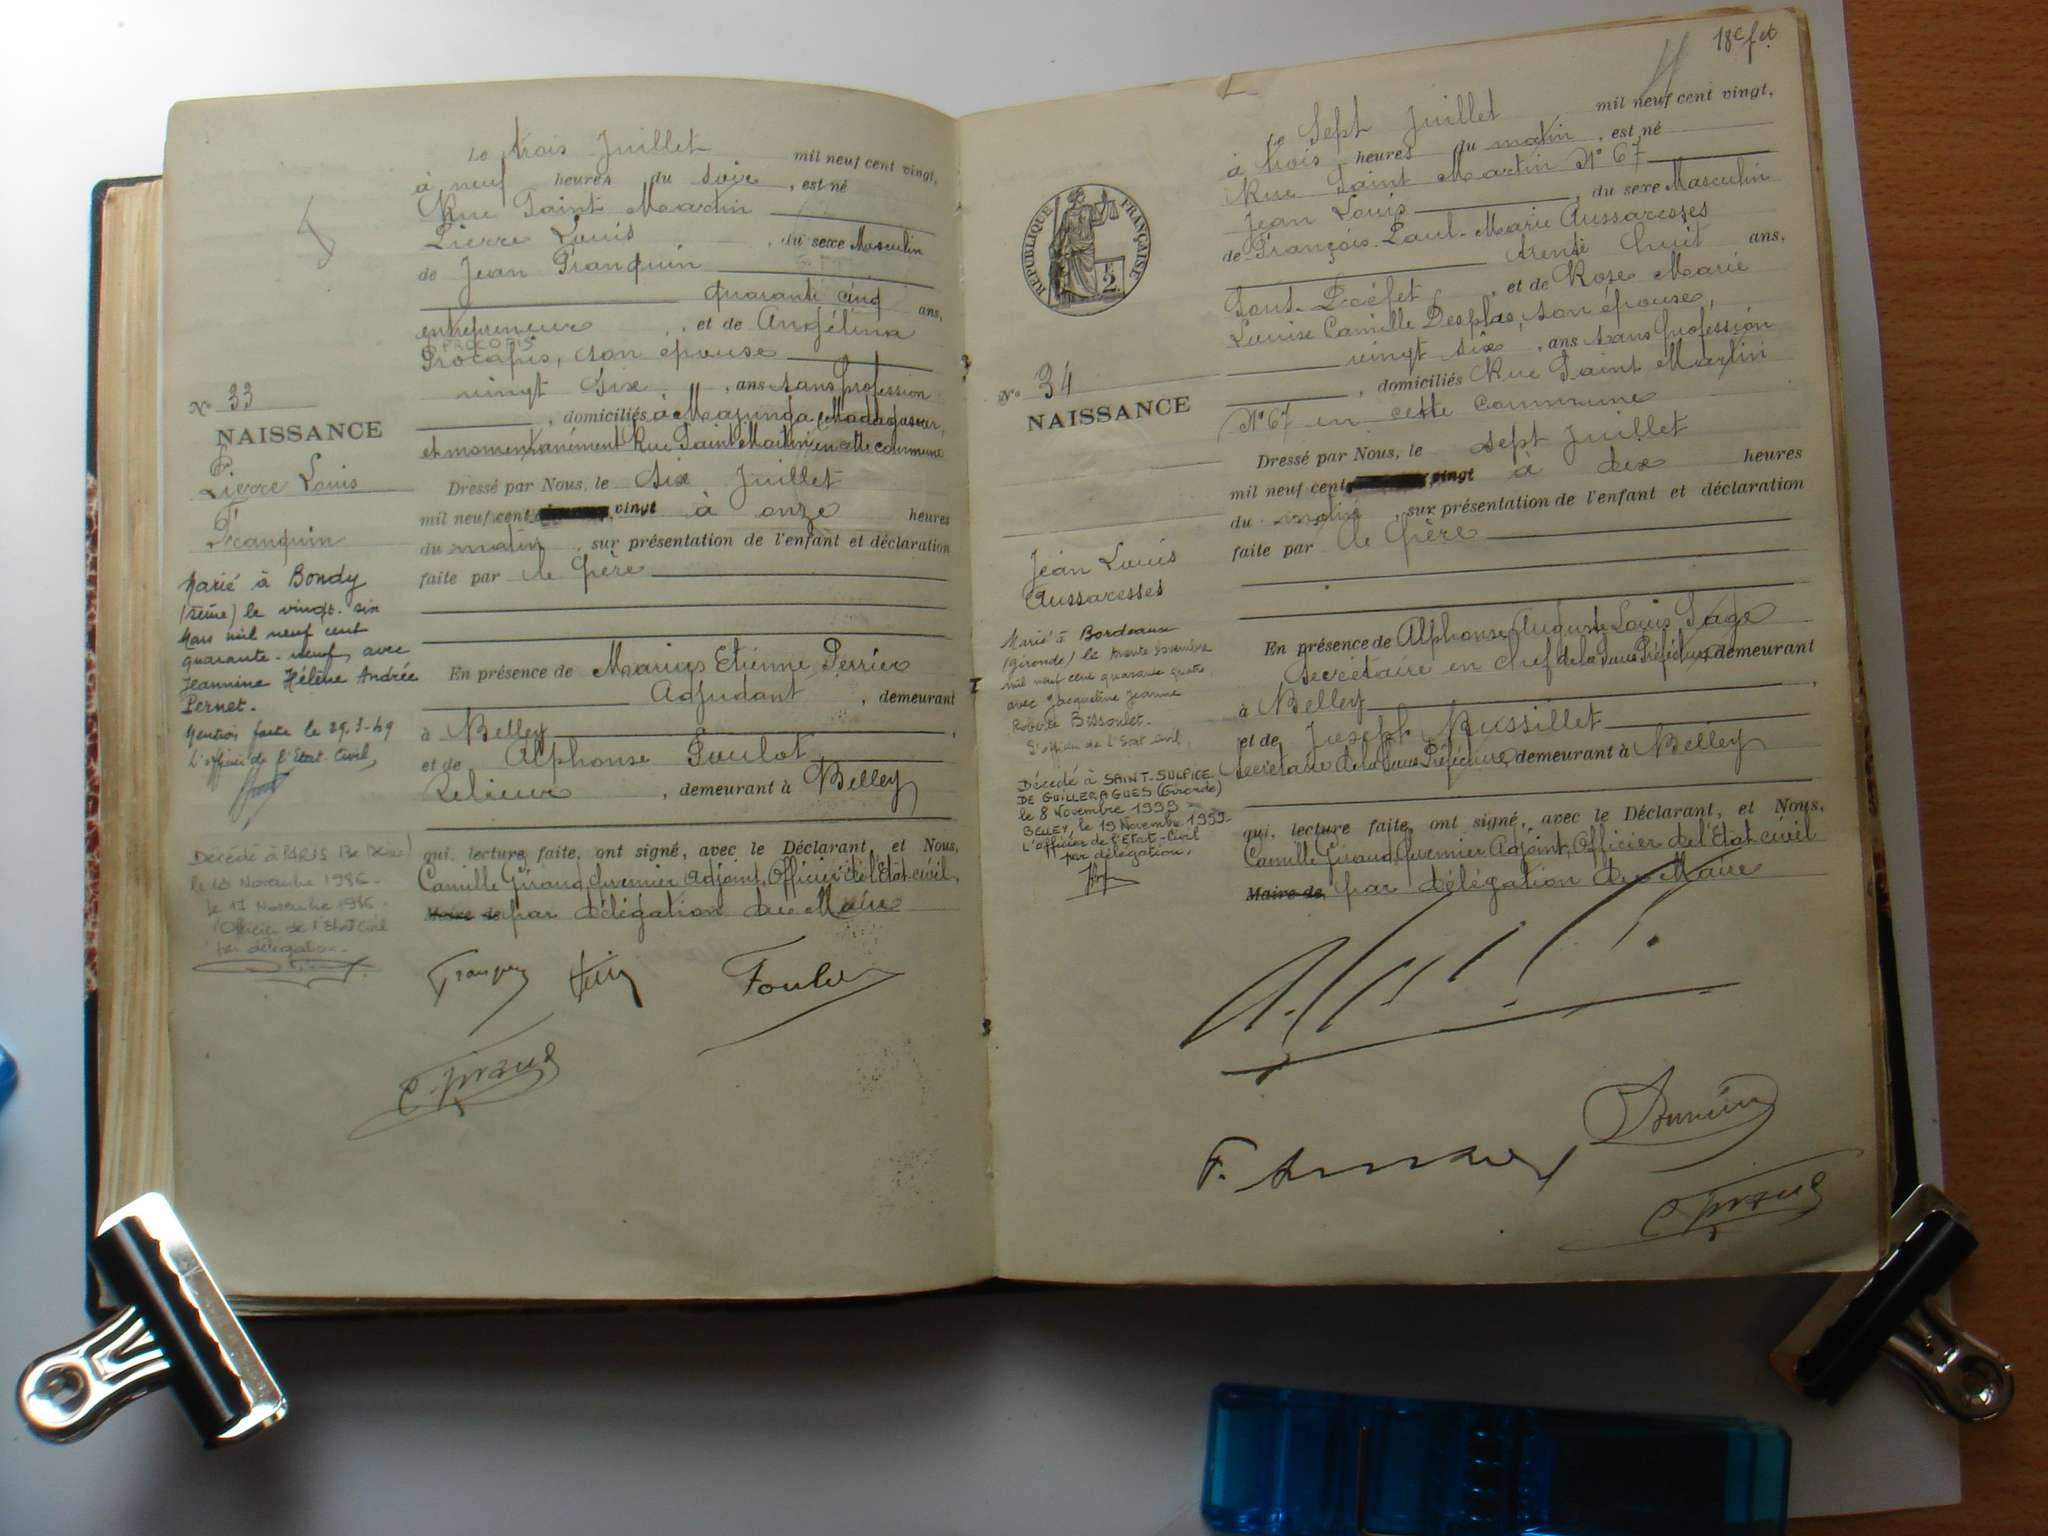 Le trois Juillet mil neuf cent vingt,
à neuf heures du soir, est né
Rue Saint Martin
Pierre Louis, du sexe Masculin
de Jean Franquin
quarante cinq ans,
entrepreneur, et de Angélina
PROCOPIS
Procapis, son épouse
vingt six, ans sans profession
, domiciliés à Majunga (Madagascar,
et momentanément Rue Saint Martin en cette commune
Dressé par Nous, le six Juillet
mil neuf cent vingt à onze heures
du matin, sur présentation de l'enfant et déclaration
faite par le père
En présence de Marius Etienne Perrier
Adjudant, demeurant
à Belley,
et de Alphonse Goulot
Relieur, demeurant à Belley
qui, lecture faite, ont signé, avec le Déclarant, et Nous,
Camille Giraud, premier Adjoint, Officier de l'Etat civil,
Maire de par délégation du Maire
C. Giraud
N° 33
NAISSANCE
Pierre Louis
Franquin
Marié à Bondy
(Seine) le vingt-six
Mars mil neuf cent
quarante-neuf, avec
Jeannine Hélène Andrée
Pernet.
Mention faite le 29-3-49
L'officier de l'Etat-Civil,
Décédé à PARIS
le Novembre 1986
le 17 Novembre 1986
l'Officier de l'Etat Civil
par délégation
18e fet
Le Sept Juillet mil neuf cent vingt,
à trois heures du matin, est né
Rue Saint Martin N° 67
Jean Louis, du sexe Masculin
de François-Paul-Marie Aussaresses
trente huit ans,
Sous-Préfet, et de Rose Marie
Louise Camille Desplas, son épouse,
vingt six, ans sans profession
, domiciliés Rue Saint Martin
N° 67 en cette commune
Dressé par Nous, le sept Juillet
mil neuf cent vingt à dix heures
du matin, sur présentation de l'enfant et déclaration
faite par le père
En présence de Alphonse Auguste Louis Sage
Secrétaire en chef de la Sous Préfecture, demeurant
à Belley,
et de Joseph Bussillet
Secrétaire de la Sous Préfecture, demeurant à Belley
qui, lecture faite, ont signé, avec le Déclarant, et Nous,
Camille Giraud, premier Adjoint, Officier de l'Etat civil
Maire de par délégation du Maire
C. Giraud
REPUBLIQUE FRANÇAISE
N° 34
NAISSANCE
Jean Louis
Aussaresses
Marié à Bordeaux
(Gironde) le trente novembre
mil neuf cent quarante quatre,
avec Jacqueline Jeanne
Roberte Bissoulet.
L'officier de l'Etat Civil,
Décédé à SAINT-SULPICE
DE GUILLERAGUES (Gironde)
le 8 Novembre 1999
BELLEY, le 19 Novembre 1999
L'officier de l'Etat-Civil
par délégation,